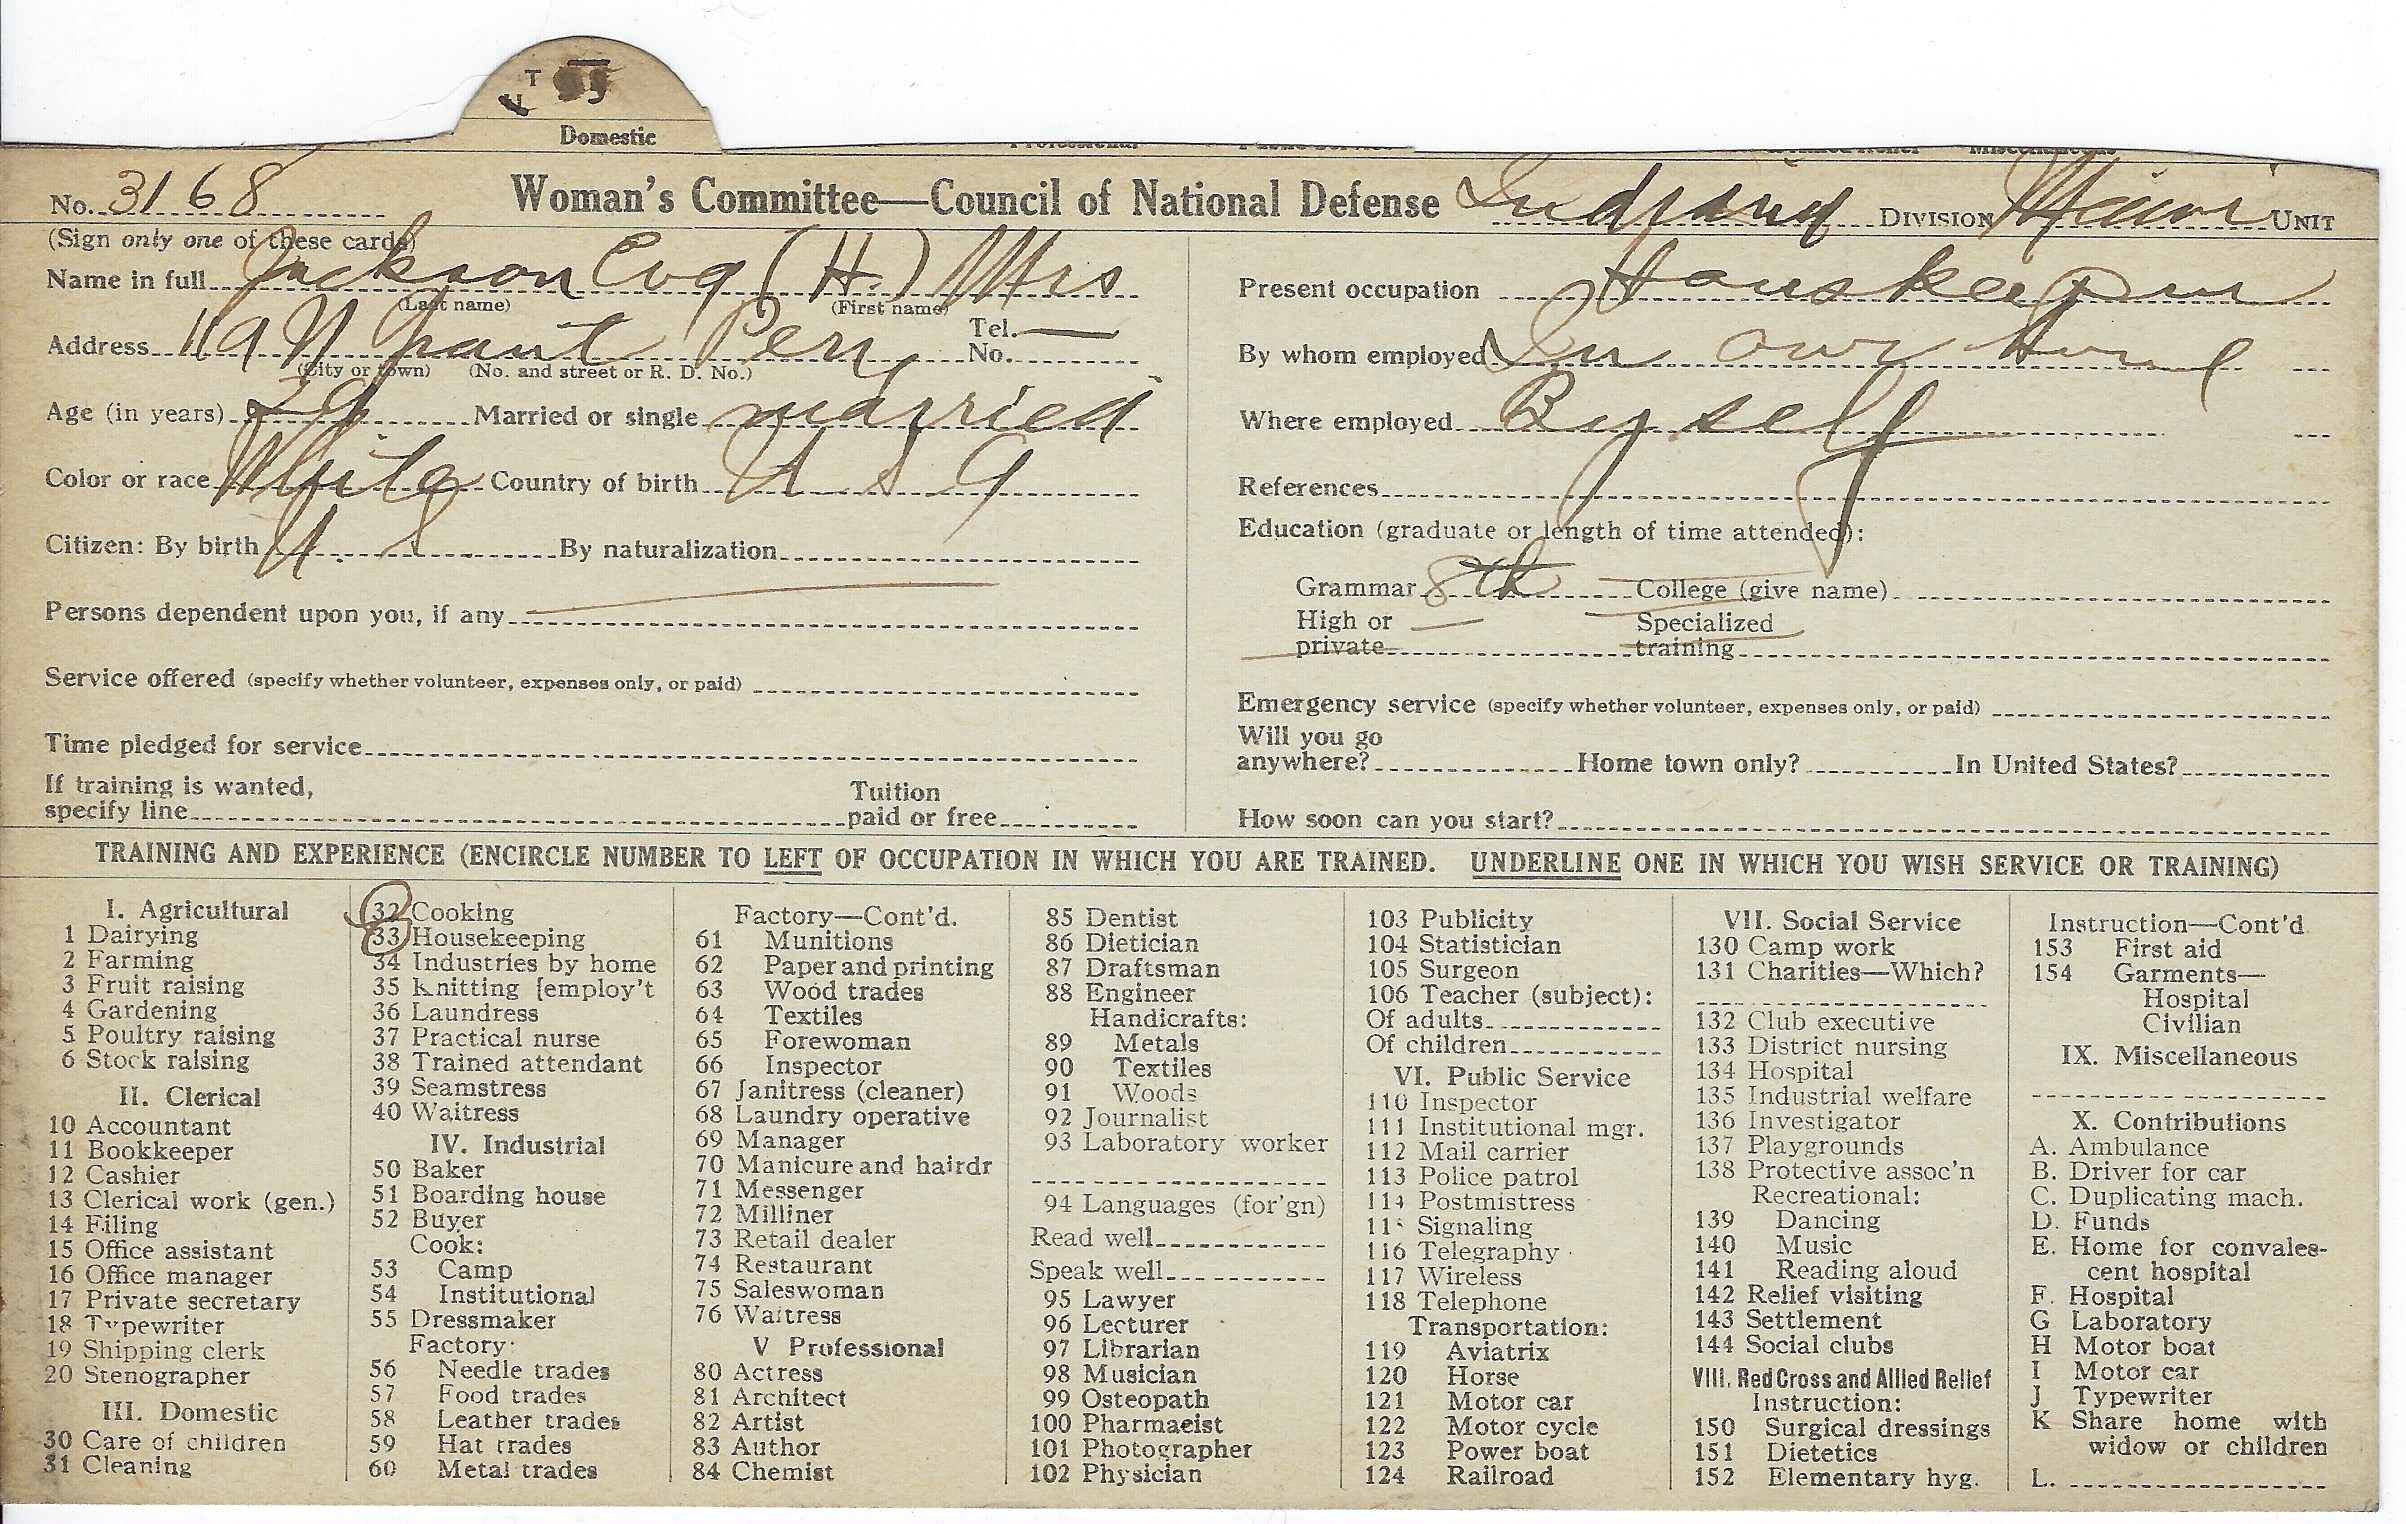 T
Domestic
No. 3168 Woman's Committee—Council of National Defense Indiana DIVISION Miami UNIT
(Sign only one of these cards)
Name in full Jackson Eva (H.) Mrs
(Last name) (First name)
Address 119 N Peru Tel. No. —
(City or town) (No. and street or R. D. No.)
Age (in years) Married or single married
Color or race White Country of birth U S A
Citizen: By birth U. S By naturalization
Persons dependent upon you, if any —
Service offered (specify whether volunteer, expenses only, or paid)
Time pledged for service
If training is wanted,
specify line Tuition paid or free
Present occupation Houskeeper
By whom employed In own Home
Where employed By self
References
Education (graduate or length of time attended):
Grammar 8th College (give name)
High or private — Specialized training
Emergency service (specify whether volunteer, expenses only, or paid)
Will you go
anywhere? Home town only? In United States?
How soon can you start?
TRAINING AND EXPERIENCE (ENCIRCLE NUMBER TO LEFT OF OCCUPATION IN WHICH YOU ARE TRAINED. UNDERLINE ONE IN WHICH YOU WISH SERVICE OR TRAINING)
I. Agricultural
1 Dairying
2 Farming
3 Fruit raising
4 Gardening
5 Poultry raising
6 Stock raising
II. Clerical
10 Accountant
11 Bookkeeper
12 Cashier
13 Clerical work (gen.)
14 Filing
15 Office assistant
16 Office manager
17 Private secretary
18 Typewriter
19 Shipping clerk
20 Stenographer
III. Domestic
30 Care of children
31 Cleaning
32 Cooking
33 Housekeeping
34 Industries by home
35 Knitting [employ't
36 Laundress
37 Practical nurse
38 Trained attendant
39 Seamstress
40 Waitress
IV. Industrial
50 Baker
51 Boarding house
52 Buyer
Cook:
53 Camp
54 Institutional
55 Dressmaker
Factory:
56 Needle trades
57 Food trades
58 Leather trades
59 Hat trades
60 Metal trades
Factory—Cont'd.
61 Munitions
62 Paper and printing
63 Wood trades
64 Textiles
65 Forewoman
66 Inspector
67 Janitress (cleaner)
68 Laundry operative
69 Manager
70 Manicure and hairdr
71 Messenger
72 Milliner
73 Retail dealer
74 Restaurant
75 Saleswoman
76 Waitress
V Professional
80 Actress
81 Architect
82 Artist
83 Author
84 Chemist
85 Dentist
86 Dietician
87 Draftsman
88 Engineer
Handicrafts:
89 Metals
90 Textiles
91 Woods
92 Journalist
93 Laboratory worker
94 Languages (for'gn)
Read well
Speak well
95 Lawyer
96 Lecturer
97 Librarian
98 Musician
99 Osteopath
100 Pharmacist
101 Photographer
102 Physician
103 Publicity
104 Statistician
105 Surgeon
106 Teacher (subject):
Of adults
Of children
VI. Public Service
110 Inspector
111 Institutional mgr.
112 Mail carrier
113 Police patrol
114 Postmistress
115 Signaling
116 Telegraphy
117 Wireless
118 Telephone
Transportation:
119 Aviatrix
120 Horse
121 Motor car
122 Motor cycle
123 Power boat
124 Railroad
VII. Social Service
130 Camp work
131 Charities—Which?
132 Club executive
133 District nursing
134 Hospital
135 Industrial welfare
136 Investigator
137 Playgrounds
138 Protective assoc'n
Recreational:
139 Dancing
140 Music
141 Reading aloud
142 Relief visiting
143 Settlement
144 Social clubs
VIII. Red Cross and Allied Relief
Instruction:
150 Surgical dressings
151 Dietetics
152 Elementary hyg.
Instruction—Cont'd.
153 First aid
154 Garments—
Hospital
Civilian
IX. Miscellaneous
X. Contributions
A. Ambulance
B. Driver for car
C. Duplicating mach.
D. Funds
E. Home for convales-
cent hospital
F. Hospital
G Laboratory
H Motor boat
I Motor car
J Typewriter
K Share home with
widow or children
L.